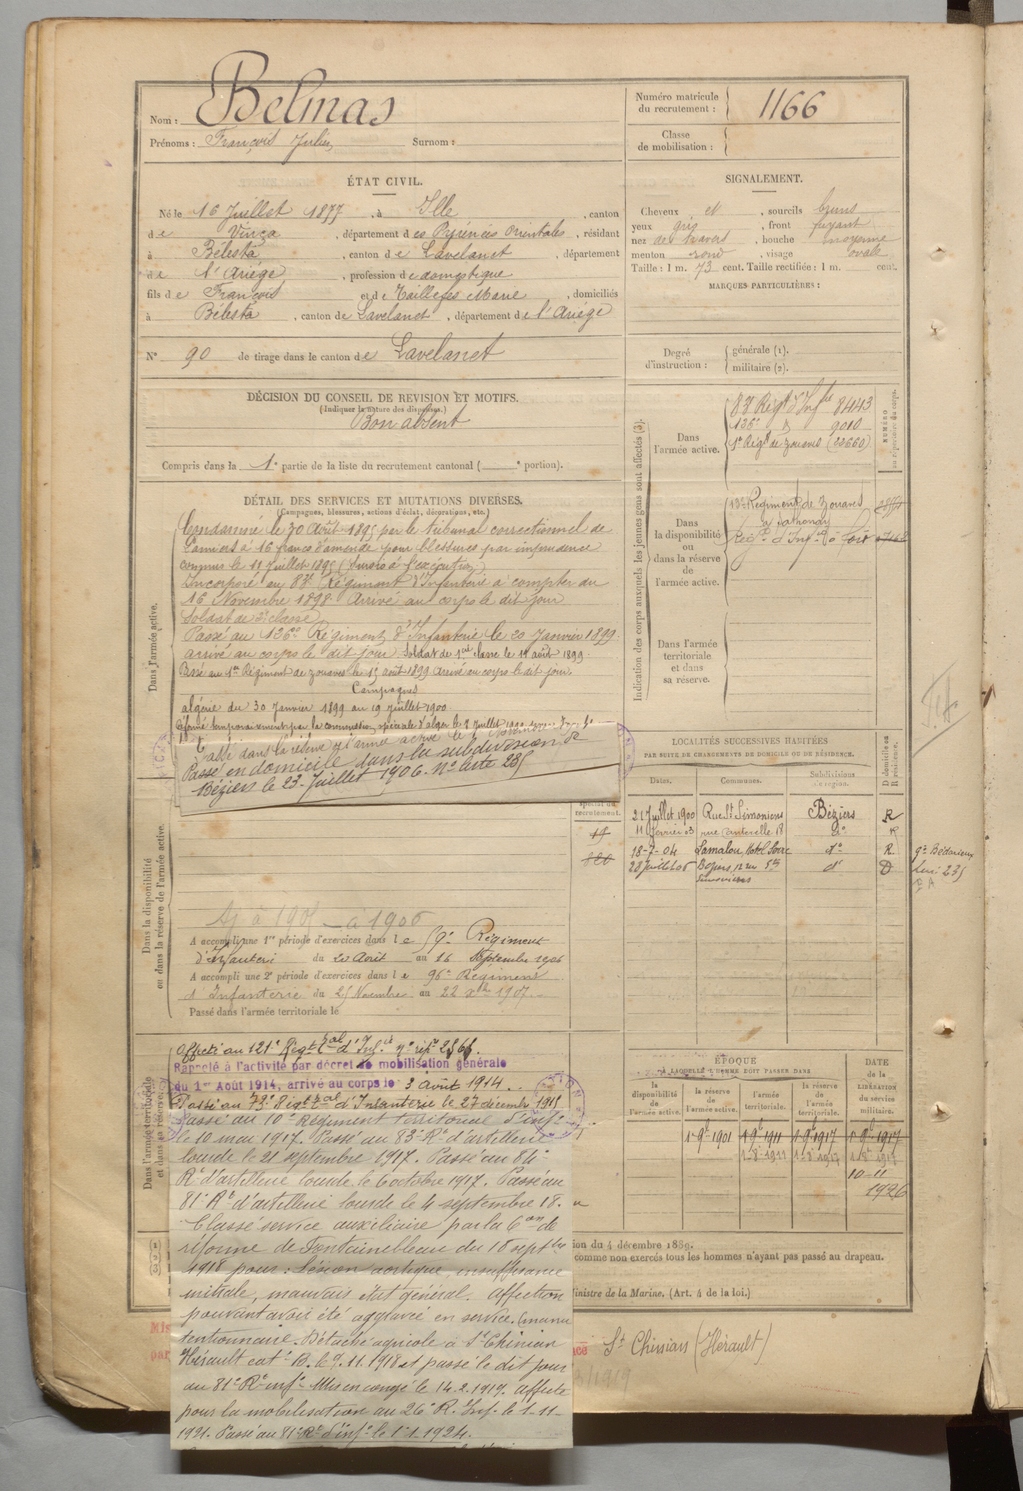 Nom : Belmas
Prénoms : François Julien Surnom :
Numéro matricule du recrutement : 1166
Classe de mobilisation :
ÉTAT CIVIL.
Né le 16 Juillet 1877, à Ille, canton
de Vinça, département des Pyrénées Orientales, résidant
à Bélesta, canton de Lavelanet, département
de l'Ariège, profession de domestique
fils de François et de Taillefer Marie, domiciliés
à Bélesta, canton de Lavelanet, département de l'Ariège
N° 90 de tirage dans le canton de Lavelanet
SIGNALEMENT.
Cheveux et, sourcils bruns
yeux gris, front fuyant
nez de travers, bouche moyenne
menton rond, visage ovale
Taille : 1 m. 73 cent. Taille rectifiée : 1 m. cent.
MARQUES PARTICULIÈRES :
Degré d'instruction : générale (1). militaire (2).
DÉCISION DU CONSEIL DE REVISION ET MOTIFS.
(Indiquer la nature des dispenses.)
Bon absent
Compris dans la 1e partie de la liste du recrutement cantonal ( e portion).
DÉTAIL DES SERVICES ET MUTATIONS DIVERSES.
(Campagnes, blessures, actions d'éclat, décorations, etc.)
Dans l'armée active.
Condamné le 30 Août 1895 par le tribunal correctionnel de
Pamiers à 16 francs d'amende pour blessures par imprudence
commis le 11 Juillet 1895 (sursis à l'exécution)
Incorporé au 87e Régiment d'Infanterie à compter du
16 Novembre 1898. Arrivé au corps le dit jour
Soldat de 2e classe
Passé au 136e Régiment d'Infanterie le 20 Janvier 1899
arrivé au corps le dit jour. Soldat de 1re classe le 11 août 1899.
Passé au 1er Régiment de zouaves le 15 août 1899 Arrivé au corps le dit jour.
Campagnes
algérie du 30 Janvier 1899 au 19 Juillet 1900.
Réformé temporairement par la commission spéciale d'alger le 2 Juillet 1900
Passé dans la réserve de l'armée active le 1
Passé en domicile dans la subdivision de
Béziers le 23 Juillet 1906. N° carte 235
Indication des corps auxquels les jeunes gens sont affectés (3).
NUMÉRO au répertoire du corps.
Dans l'armée active.
87 Régt d'Infie 8443
136e d° 9010
1er Régt de zouaves (20660)
Dans la disponibilité ou dans la réserve de l'armée active.
Régiment de zouaves
Régt d'Infie à Foix
Dans l'armée territoriale et dans sa réserve.
LOCALITÉS SUCCESSIVES HABITÉES
PAR SUITE DE CHANGEMENTS DE DOMICILE OU DE RÉSIDENCE.
Dates. Communes. Subdivisions de région. D domicile ou R résidence.
21 Juillet 1900 Rue St Simoniens Béziers R
11 février 03 rue Canterelle 18 d° R
18-7-04 Lamalou, Hotel d° R gie Bédarieux
23 Juillet 06 Béziers, d° D
Dans la disponibilité ou dans la réserve de l'armée active.
spécial du recrutement.
à 1905 — à 1906
A accompli une 1re période d'exercices dans le 59e Régiment
d'Infanterie du 20 Août au 16 Septembre 1906
A accompli une 2e période d'exercices dans le 96e Régiment
d'Infanterie du 25 Novembre au 22 Xbre 1907.
Passé dans l'armée territoriale le
Dans l'armée territoriale et dans sa réserve.
Affecté au 121e Régt tal d'Infie n° rép. 2868.
Rappelé à l'activité par décret de mobilisation générale
du 1er Août 1914, arrivé au corps le 3 Août 1914.
Passé au 73e Régt tal d'Infanterie le 27 décembre 1915
Passé au 10e Régiment territorial d'infie
le 10 mai 1917. Passé au 83e Rt d'artillerie
lourde le 21 septembre 1917. Passé au 84e
Rt d'artillerie lourde le 6 octobre 1917. Passé au
81e Rt d'artillerie lourde le 4 septembre 18.
Classé service auxiliaire par la 6e on de
réforme de Fontainebleau du 18 septbre
1918 pour : Lésion aortique, insuffisance
mitrale, mauvais état général. Affection
pouvant avoir été aggravée en service. (manu
tentionnaire. Détaché agricole à St Chinian
Hérault catie B. le 9.11.1918 et passé le dit jour
au 81e Rt infie Mis en congé le 14.2.1919. affecté
pour la mobilisation au 26e R. Inf. le 1-11-
1921. Passé au 81e Rt d'infie le 1-1-1924.
ÉPOQUE
A LAQUELLE L'HOMME DOIT PASSER DANS
DATE de la LIBÉRATION du service militaire.
la disponibilité de l'armée active. la réserve de l'armée active. l'armée territoriale. la réserve de l'armée territoriale.
1 9bre 1901 1 9bre 1911 1 9bre 1917 1 9bre 1917
1-8-1911 1-8-1917
10-11
1926
tion du 4 décembre 1889.
comme non exercés tous les hommes n'ayant pas passé au drapeau.
inistre de la Marine. (Art. 4 de la loi.)
St Chinian (Hérault)